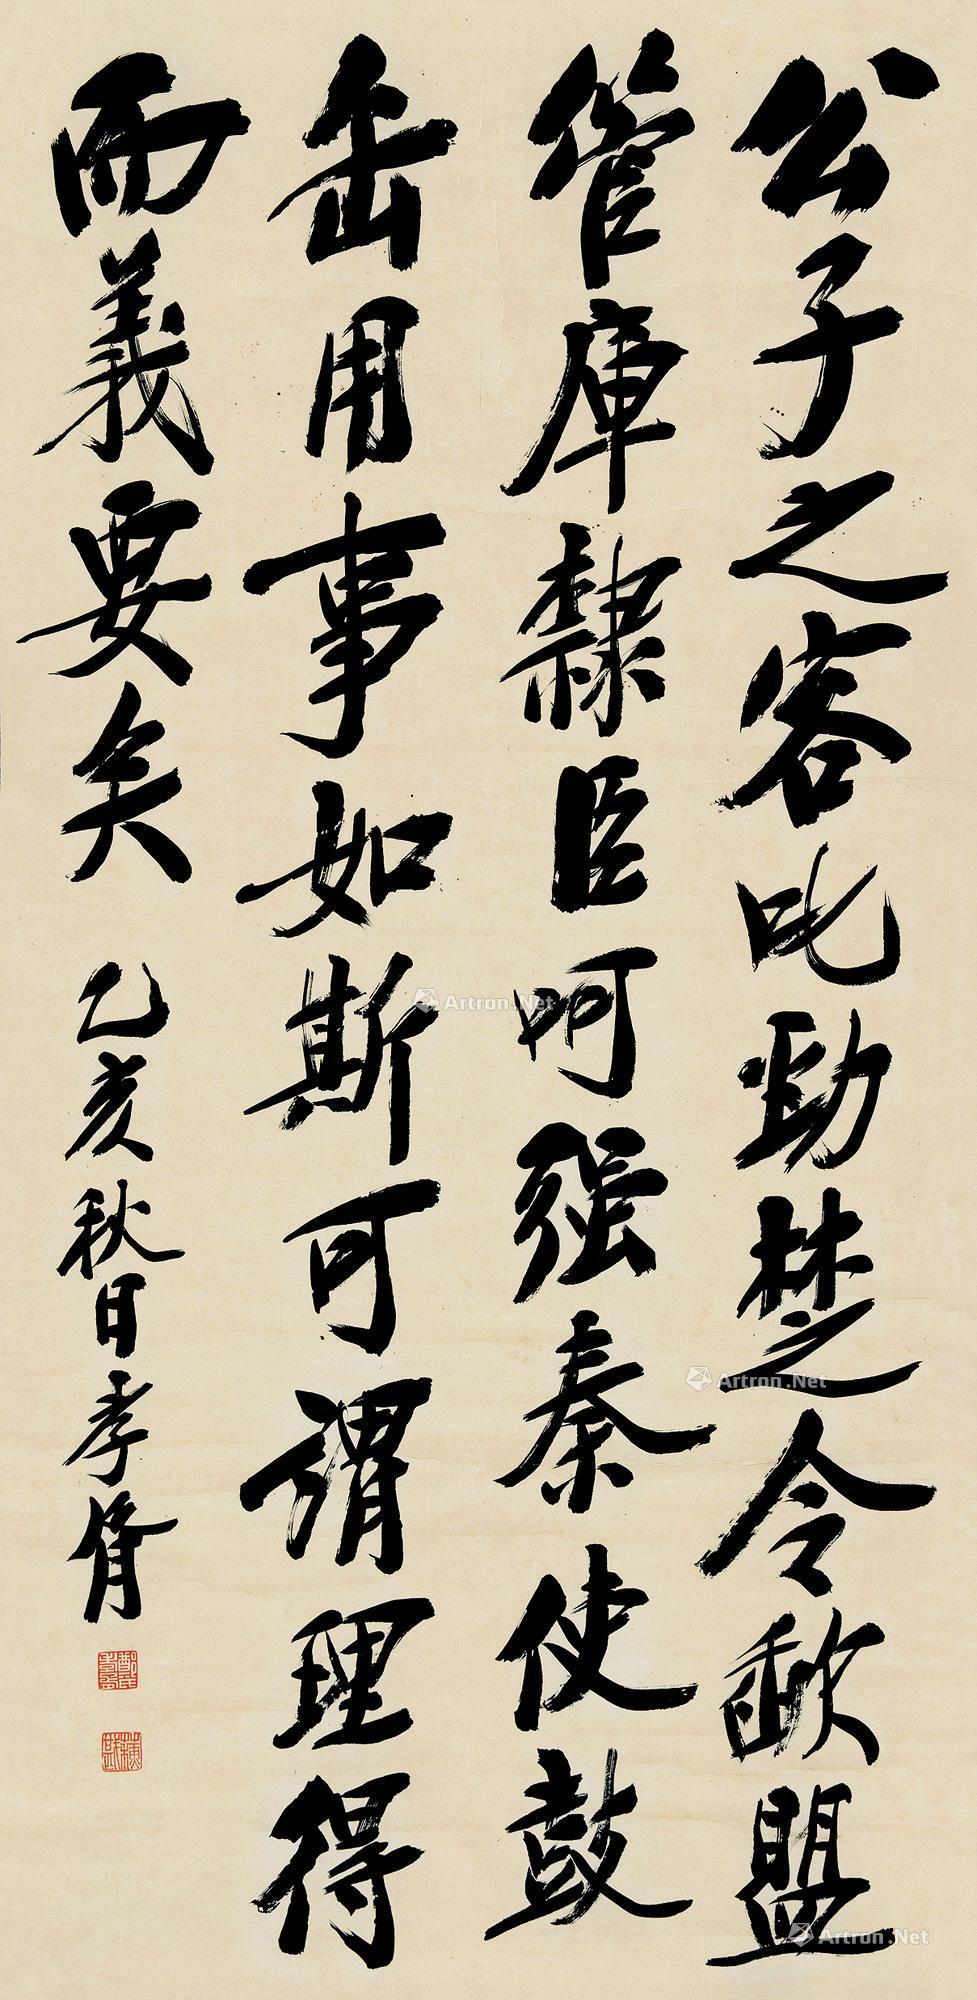 公子之客叱勁楚之令歃盟
管庫隸臣呵强秦使鼓
缶用事如斯可謂理得
而義要矣
乙亥秋日孝胥
Artron.Net
Artron.Net
Artron.Net